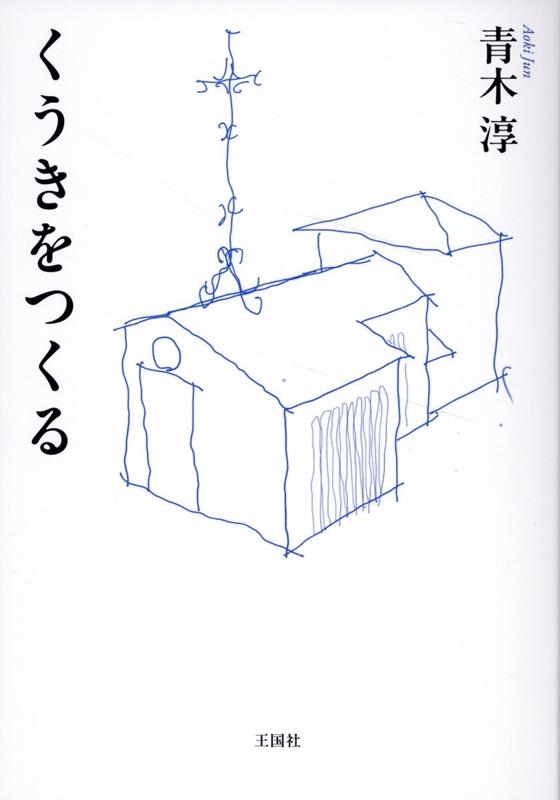 青木淳
Aoki Jun
くうきをつくる
王国社